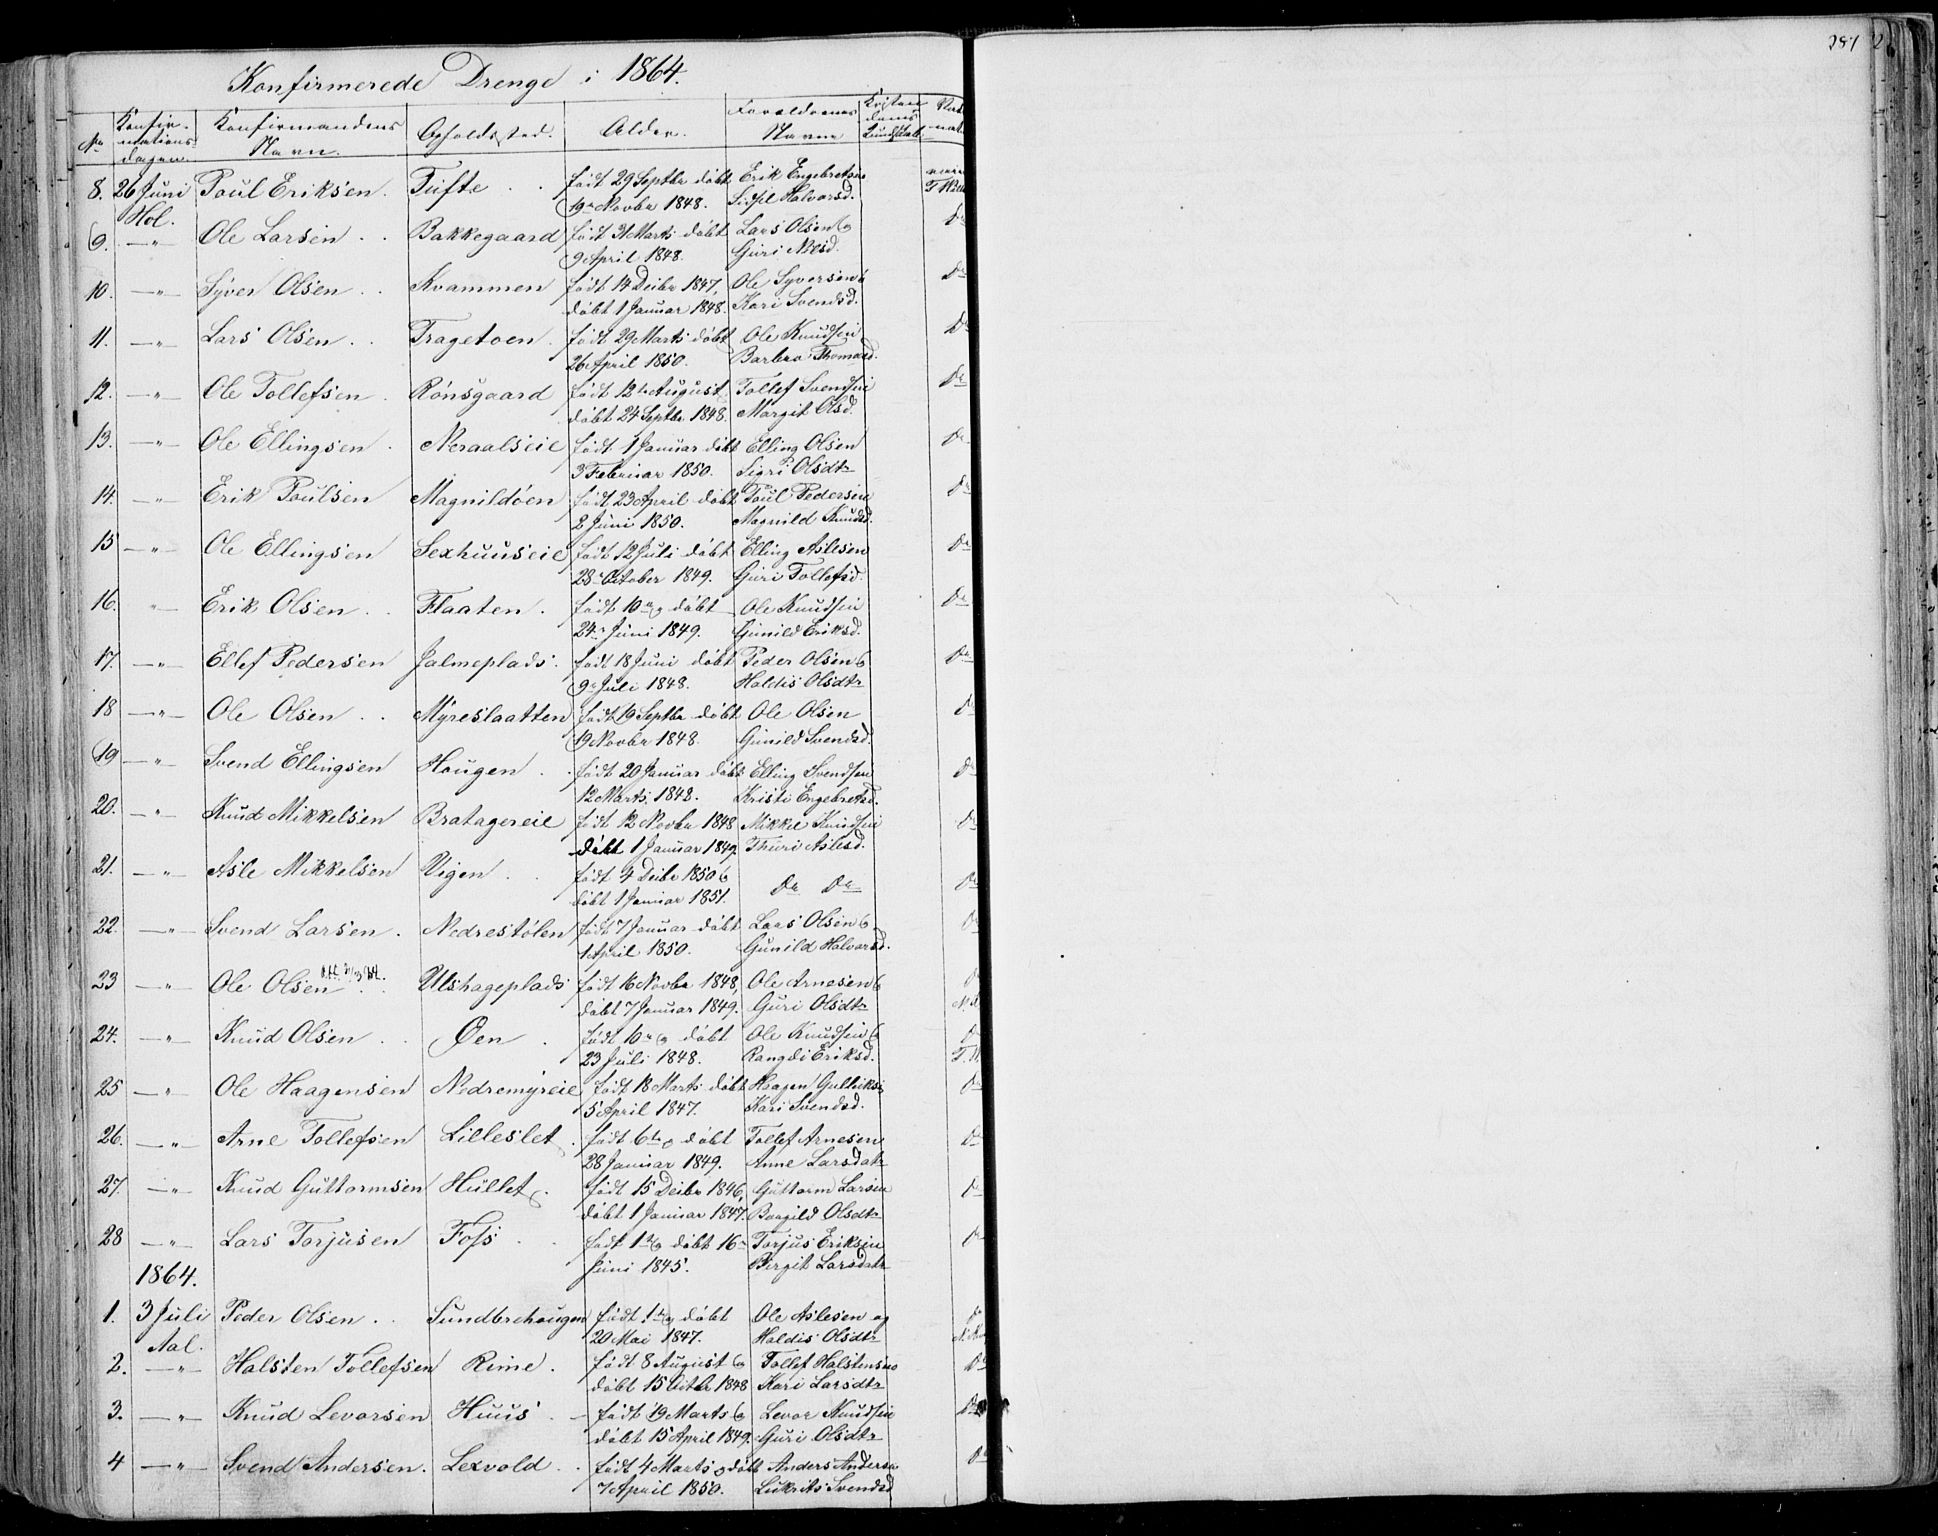 287
Konfirmerede Drenge i 1864.
No Konfirmationsdagen. Konfirmandens Navn. Opholdssted. Alder. Forældrenes Navne Kristendoms Kundskab
8. 26 Juni Poul Eriksen. Tufte født 29 Septbr døbt Erik Engebretsen
Hol. 19de Novbr 1848. Sidsel Halvorsd.
9. —"— Ole Larsen Bakkegaard født 31 Marts døbt Lars Olsen og Do
9 April 1848. Guri Nilsd.
10. —"— Syver Olsen Kvammen født 14 Decbr 1847, Ole Syversen Do
døbt 1 Januar 1848. Kari Svendsd.
11. —"— Lars Olsen Tragetoen født 29 Marts døbt Ole Knudsen Do
26 April 1850. Barbro Thomasd.
12. —"— Ole Tollefsen Rønsgaard født 12te August Tollef Svendsen Do
døbt 24 Septbr 1848. Margit Olsd.
13. —"— Ole Ellingsen Neraalseie født 1 Januar døbt Elling Olsen Do
3 Februar 1850. Sigri Olsdtr
14. —"— Erik Poulsen Magnildøen født 23 April døbt Poul Pedersen Do
2 Juni 1850. Magnild Knudsd.
15 —"— Ole Ellingsen Sexhuuseie født 12 Juli døbt Elling Aslesen Do
28 October 1849. Guri Tollefsd.
16. " Erik Olsen Flaaten. født 10de og døbt Ole Knudsen Do
24de Juni 1849. Gunild Eriksd.
17. —"— Ellef Pedersen Jalmeplads. født 18 Juni døbt Peder Olsen og Do
9de Juli 1848. Haldis Olsdtr
18 —"— Ole Olsen Myreslaatten født 19 Septbr døbt Ole Olsen Do
19 Novbr 1848. Gunild Svendsd.
19 —"— Svend Ellingsen Haugen født 20 Januar døbt Elling Svendsen Do
12 Marts. 1848. Kristi Engebretsd.
20. —"— Knud Mikkelsen Bratagereie født 12 Novbr 1848 Mikkel Knudsen Do
døbt 1 Januar 1849. Thuri Aslesd.
21. —"— Asle Mikkelsen Vigen født 4 Decbr 1850 og Do Do Do
døbt 1 Januar 1851.
22. —"— Svend Larsen. Nedrestølen født 7 Januar døbt Lars Olsen og Do
1 April 1850. Gunild Halvorsd.
23 —"— Ole Olsen Ulshageplads født 16 Novbr 1848, Ole Arnesen og
døbt 7 Januar 1849. Guri Olsdtr
24. —"— Knud Olsen Øen født 10de og døbt Ole Knudsen og
23 Juli 1848. Rangdi Eriksd.
25 —"— Ole Haagensen Nedremyreie født 18 Marts døbt Haagen Gulliks Do
5 April 1847. Kari Svendsd.
26. —"— Arne Tollefsen Lilleslet født 6te og døbt Tollef Arnesen Do
28 Januar 1849. Anne Larsdatr
27. —"— Knud Guttormsen Hullet. født 15 Decbr 1846, Guttorm Larsen Do
døbt 1 Januar 1847. Borgild Olsdtr
28 —"— Lars Torjusen Foss født 1de og døbt 16de Torjus Eriksen Do
Juni 1845. Birgit Larsdatr
1864.
1. 3 Juli Peder Olsen Sundbrehaugen født 1de og døbt Ole Aslesen og Do
Aal. 20 Mai 1847. Haldis Olsdtr
2. —"— Halsten Tollefsen Rime. født 8 August og Tollef Halstensen Do
døbt 15 Octbr 1848 Kari Larsdtr
3. —"— Knud Levorsen Huus født 19 Marts og Levor Knudsen Do
døbt 15 April 1849. Guri Olsdtr
4 —"— Svend Andersen. Lexvold født 4 Marts og døbt Anders Andersen Do
7 April 1850. Lukrits Svendsd